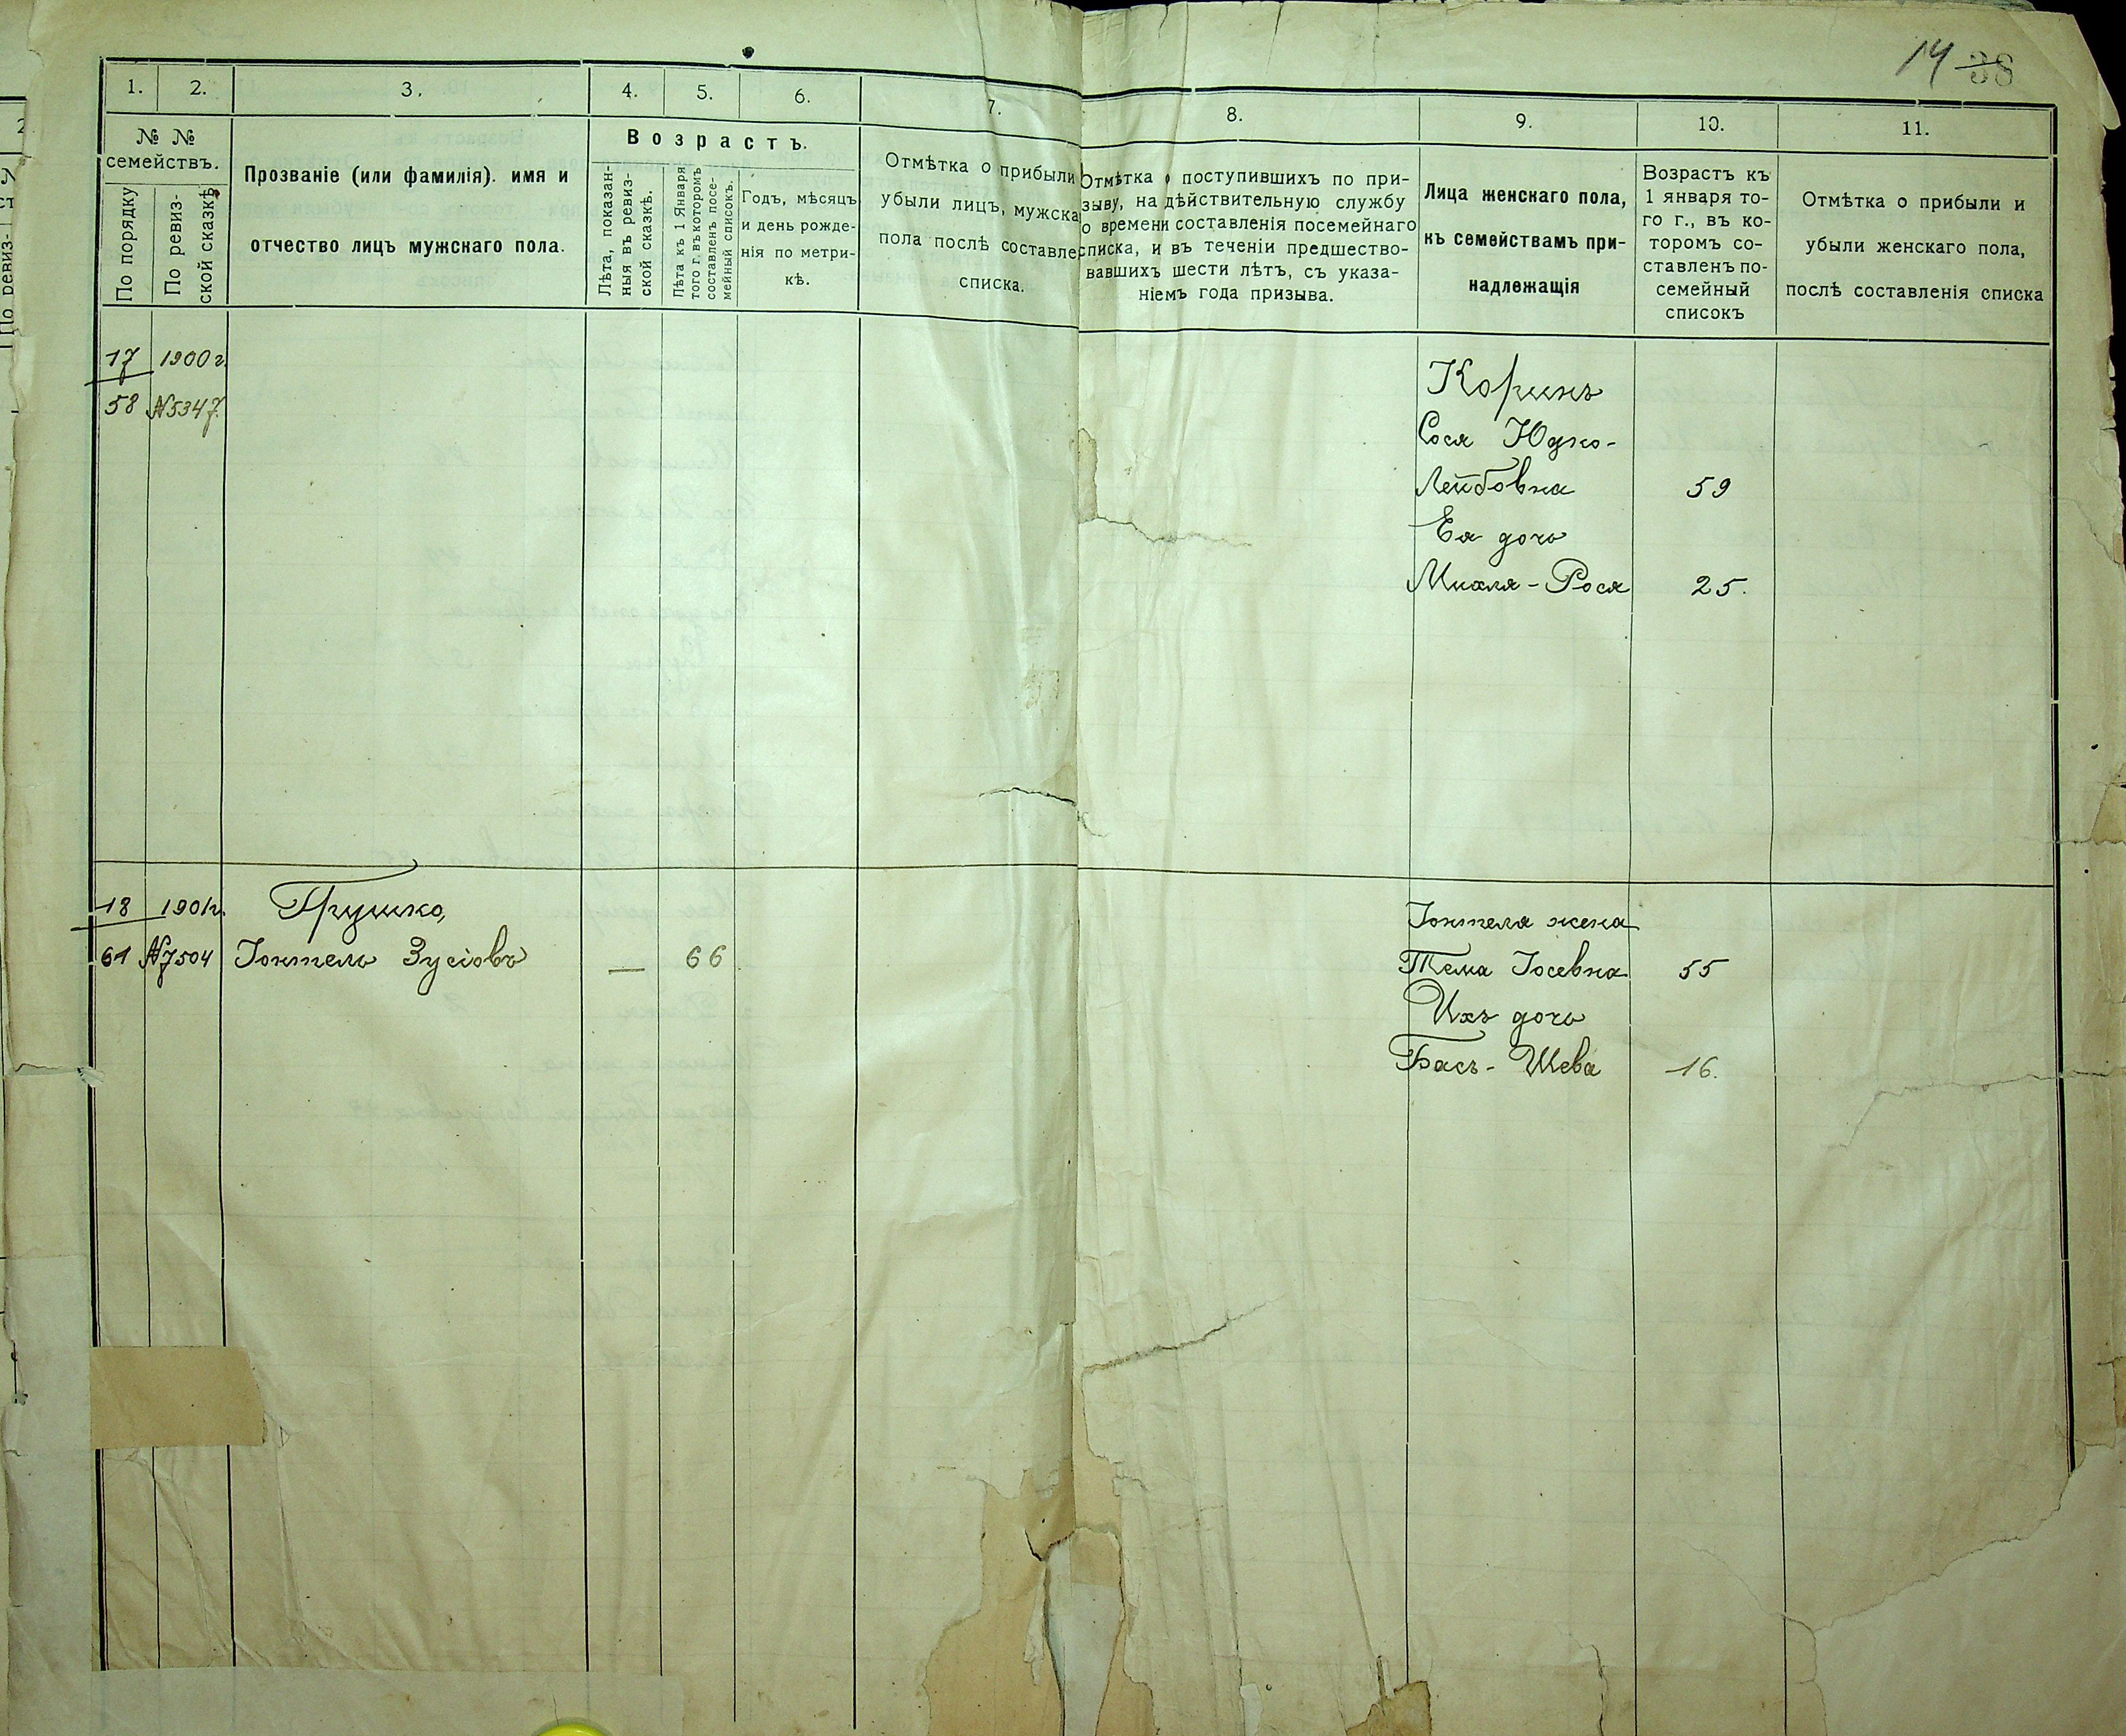 14 38
1.
2.
3.
4.
5.
6.
7.
8.
9.
10.
11.
№ №
семействъ.
По порядку
По ревиз-
ской сказкѣ
Прозваніе (или фамилія). имя и
отчество лицъ мужскаго пола.
Возрастъ.
Лѣта, показан-
ныя въ ревиз-
ской сказкѣ.
Лѣта къ 1 Января
того г. въ которомъ
составленъ посе-
мейный списокъ.
Годъ, мѣсяцъ
и день рожде-
нія по метри-
кѣ.
Отмѣтка о прибыли
убыли лицъ, мужска
пола послѣ составле
списка.
Отмѣтка о поступившихъ по при-
зыву, на дѣйствительную службу
о времени составленія посемейнаго
списка, и въ теченіи предшество-
вавшихъ шести лѣтъ, съ указа-
ніемъ года призыва.
Лица женскаго пола,
къ семействамъ при-
надлежащія
Возрастъ къ
1 января то-
го г., въ ко-
торомъ со-
ставленъ по-
семейный
списокъ
Отмѣтка о прибыли и
убыли женскаго пола,
послѣ составленія списка
17 1900 г.
58 №5347.
Коринъ
Сося Юдко-
Лейбовна 59
Ея дочь
Михля-Рося 25.
18 1901 г. Грушко,
61 №7504 Іонтель Зусіовъ — 66
Іонтеля жена
Тема Іосевна 55
Ихъ дочь
Басъ-Шева 16.